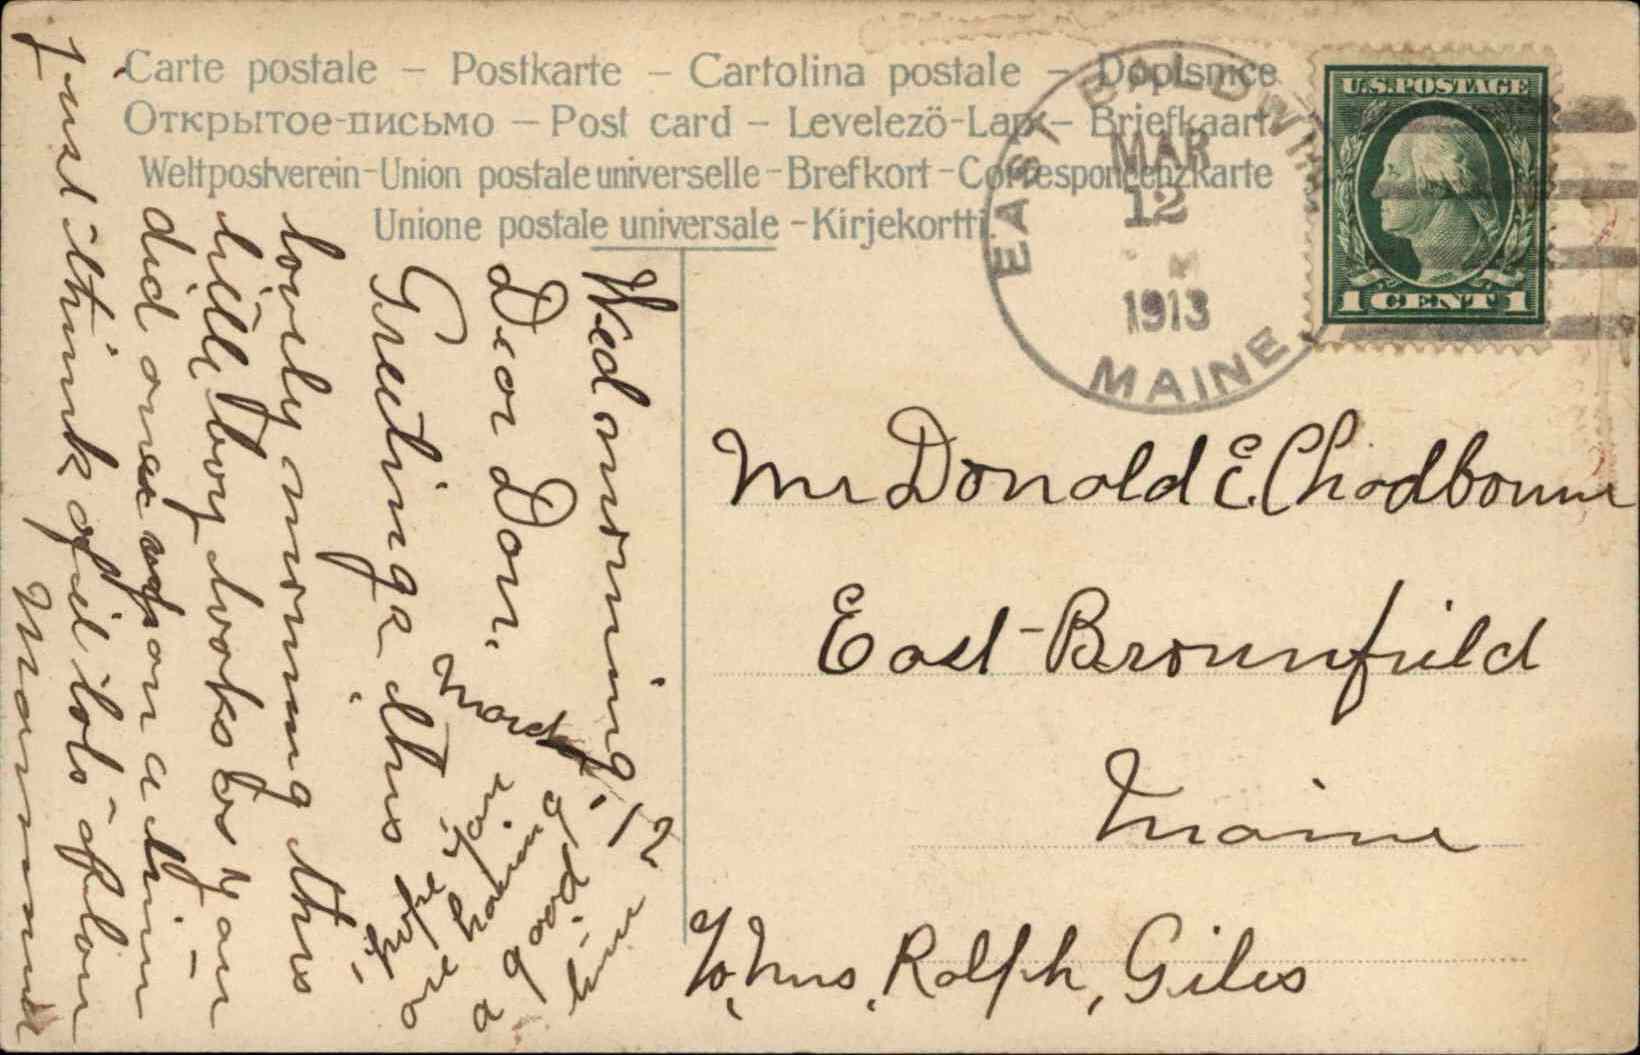 Carte postale – Postkarte – Cartolina postale – Dopisnice
Открытое-письмо – Post card – Levelezö-Lap – Briefkaart
Weltpostverein-Union postale universelle-Brefkort-Correspondenzkarte
Unione postale universale -Kirjekortti.
EAST BALDWIN
MAR
12
1913
MAINE.
U.S.POSTAGE
1 CENT 1
Wed morning. 12
Dear Don. March
Greetings this
lovely morning this
little boy looks as you
did once upon a time
just think of it lots of love
Mamma
I hope you
are having
a good
time
Mr Donald E. Chadbourne
East-Brownfield
Maine
℅, Mrs, Ralph, Giles